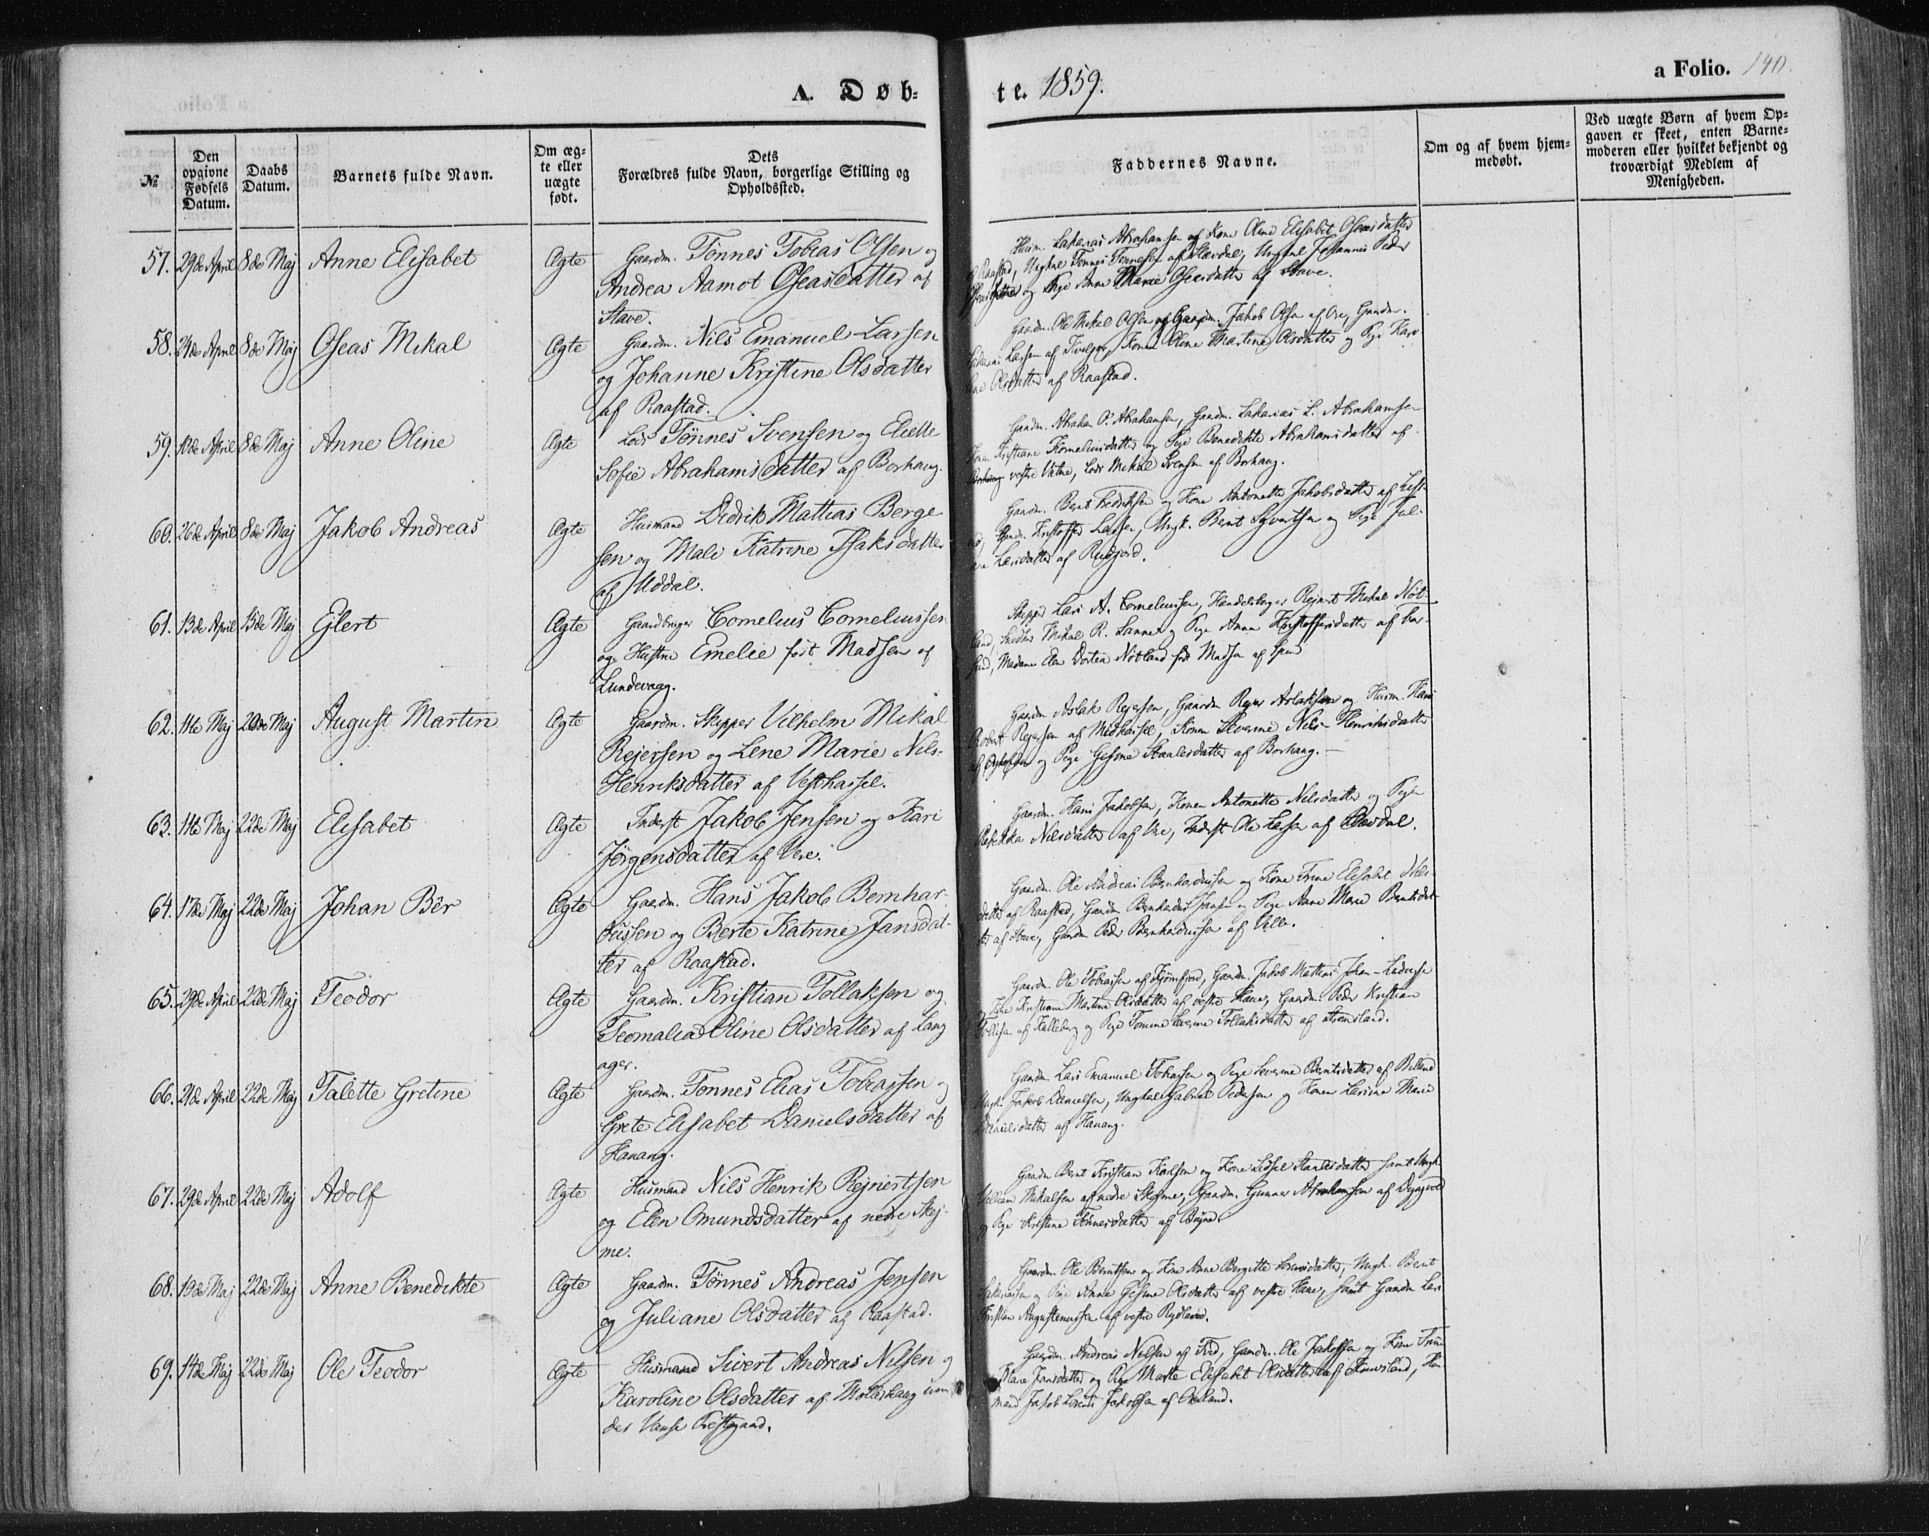 A. Døb-
te. 1859.
a Folio. 140.
№
Den opgivne Fødsels Datum.
Daabs Datum.
Barnets fulde Navn.
Om ægte eller uægte født.
Dets Forældres fulde Navn, borgerlige Stilling og Opholdssted.
Faddernes Navne.
Om og af hvem hjemmedøbt.
Ved uægte Børn af hvem Opgaven er skeet, enten Barnemoderen eller hvilket bekjendt og troværdigt Medlem af Menigheden.
57. 29de April 8de Maj Anne Elisabet Ægte Gaardm. Tønnes Tobias Olsen og
Andrea Aamot Oseasdatter af
Stave.
Husm. Sakarias Abrahamsen og Kone Oline Elisabet Oseasdatter
Raastad, Ungkal Tønnes Tønnesen af Slevdal, Ungkal Johannes Peder
og Pige Anne Marie Oseasdatter af Stave.
58. 24de April 8de Maj Oseas Mikal Ægte Gaardm. Nils Emanuel Larsen
og Johanne Kristine Olsdatter
af Raastad.
Gaardm. Ole Mikal Olsen og Gaardm. Jakob Olsen af Ore, Gaardm.
Larsen af Tveljer, Kone Oline Martine Olsdatter og Pige Karo
line Olsdatter af Raastad.
59. 10de April 8de Maj Anne Oline Ægte Lods Tønnes Svensen og Elette
Sofie Abrahamsdatter af Borhaug.
Gaardm. Abraham O. Abrahamsen, Gaardm. Sakarias L. Abrahamsen
Kristiane Korneliusdatter og Pige Benedikte Abrahamsdatter af
vestre Vatne, Lods Mikal Svensen af Borhaug.
60. 26de April 8de Maj Jakob Andreas Ægte Husmand Didrik Mattias Berge
sen og Male Katrine Isaksdatter
af Uddal.
Gaardm. Bent Fredriksen og Kone Antonette Jakobsdatter af List
Kristoffer Larsen, Ungk. Bent Syvertsen og Pige Jul-
ane Larsdatter af Rudjord.
61. 13de April 15de Maj Ejlert Ægte Gaardbruger Cornelius Corneliussen
og Hustru Emelie født Madsen af
Lundevaag.
Skipper Lars A. Corneliussen, Handelsborger Rejnert Mikal Nøt-
land, Mikal R. Sannes og Pige Anna Kristoffersdatter af Far-
sund, Madame Elen Dortea Nøtland født Madsen af
62. 1ste Maj 20de Maj August Martin Ægte Gaardm. Skipper Vilhelm Mikal
Rejersen og Lene Marie Nils-
Henriksdatter af Vesthassel.
Gaardm. Aslak Rejersen, Gaardm. Rejer Aslaksen og Husm. Hans
Robert Rejersen af Midthassel, Konen Severine Nils-Henriksdatter
og Pige Gesine Staalesdatter af Borhaug.
63. 1ste Maj 22de Maj Elisabet Ægte Inderst Jakob Jensen og Kari
Jørgensdatter af Ore.
Gaardm. Hans Jakobsen, Konen Antonette Nilsdatter og Pige
Rebekka Nilsdatter af Ore, Inderst Ole Larsen af Slevdal.
64. 17de Maj 22de Maj Johan Bêr Ægte Gaardm. Hans Jakob Bernhar-
dussen og Berte Katrine Jansdat-
ter af Raastad.
Gaardm. Ole Andreas Bernhardussen og Kone Trine Elisabet Nils-
datter af Raastad, Gaardm. Bernhardus Jansen og Pige Anne Marie Berntsdat-
ter af Stave, Gaardm. Peder Bernhardussen af Velle.
65. 29de April 22de Maj Teodor Ægte Gaardm. Kristian Tollaksen og
Teomalia Oline Olsdatter af Lang
ager.
Gaardm. Ole Tobiassen af Bjørnfjord, Gaardm. Jakob Mattias Johan-Ludvigse
Kristiane Martine Olsdatter af vestre Hauge, Gaardm. Peder Kristian
Tollefsen af Kalleberg og Pige Tomine Severine Tollaksdatter af
66. 21de April 22de Maj Talette Gretine Ægte Gaardm. Tønnes Elias Tobiassen og
Grete Elisabet Danielsdatter af
Hanang.
Gaardm. Lars Emanuel Tobiassen og Pige Severine Berntsdatter af
Ungk. Jakob Danielsen, Ungkal Gabriel Pedersen og Konen Larsine Marie
Danielsdatter af Hanang.
67. 29de April 22de Maj Adolf Ægte Husmand Nils Henrik Rejnertsen
og Elen Omundsdatter af nedre Skej-
me.
Gaardm. Bernt Kristian Karlsen og Kone Sidsel Staalesdatter samt Ungk.
Mikalsen af nedre Skejme, Gaardm. Gunner Abrahamsen af Dyngvold
og Pige Kristine Tønnesdatter af Bryne.
68. 19de Maj 22de Maj Anne Benedikte Ægte Gaardm. Tønnes Andreas Jensen
og Juliane Olsdatter af Raastad.
Gaardm. Ole Berntsen og Kone Anne Bergitte Larsdatter, Ungk. Bent
Sakariassen og Pige Anne Gesine Olsdatter af vestre Hauge, samt Gaardm. Lars
Kristian Augustinussen af vestre
69. 14de Maj 22de Maj Ole Teodor Ægte Husmand Sivert Andreas Nilsen og
Karoline Olsdatter af Møllerhaug un-
der Vanse Præstegaard.
Gaardm. Andreas Nilsen af Tved, Gaardm. Ole Jakobsen og Kone Trine
Jansdatter og Pige Marte Elisabet Olsdatter af Kuvsland, Hus-
mand Jakob Lorents Jakobsen af